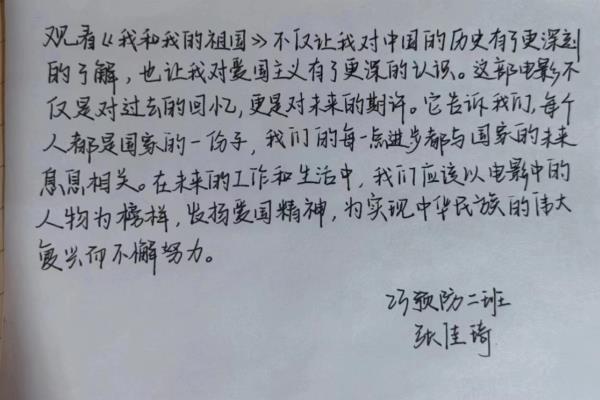 观看《我和我的祖国》不仅让我对中国的历史有了更深刻
的了解，也让我对爱国主义有了更深的认识。这部电影不
仅是对过去的回忆，更是对未来的期许。它告诉我们，每个
人都是国家的一份子，我们的每一点进步都与国家的未来
息息相关。在未来的工作和生活中，我们应该以电影中的
人物为榜样，发扬爱国精神，为实现中华民族的伟大
复兴而不懈努力。
23预防二班
张佳琦